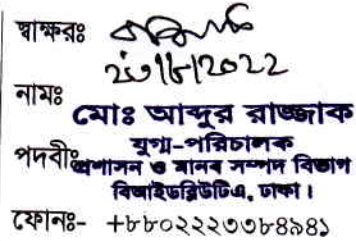 স্বাক্ষরঃ
নামঃ
মোঃ আব্দুর রাজ্জাক
যুগ্ম-পরিচালক
পদবীঃ প্রশাসন ও মানব সম্পদ বিভাগ
বিআইডব্লিউটিএ, ঢাকা।
ফোনঃ- +৮৮০২২২৩৩৮৪৯৪১